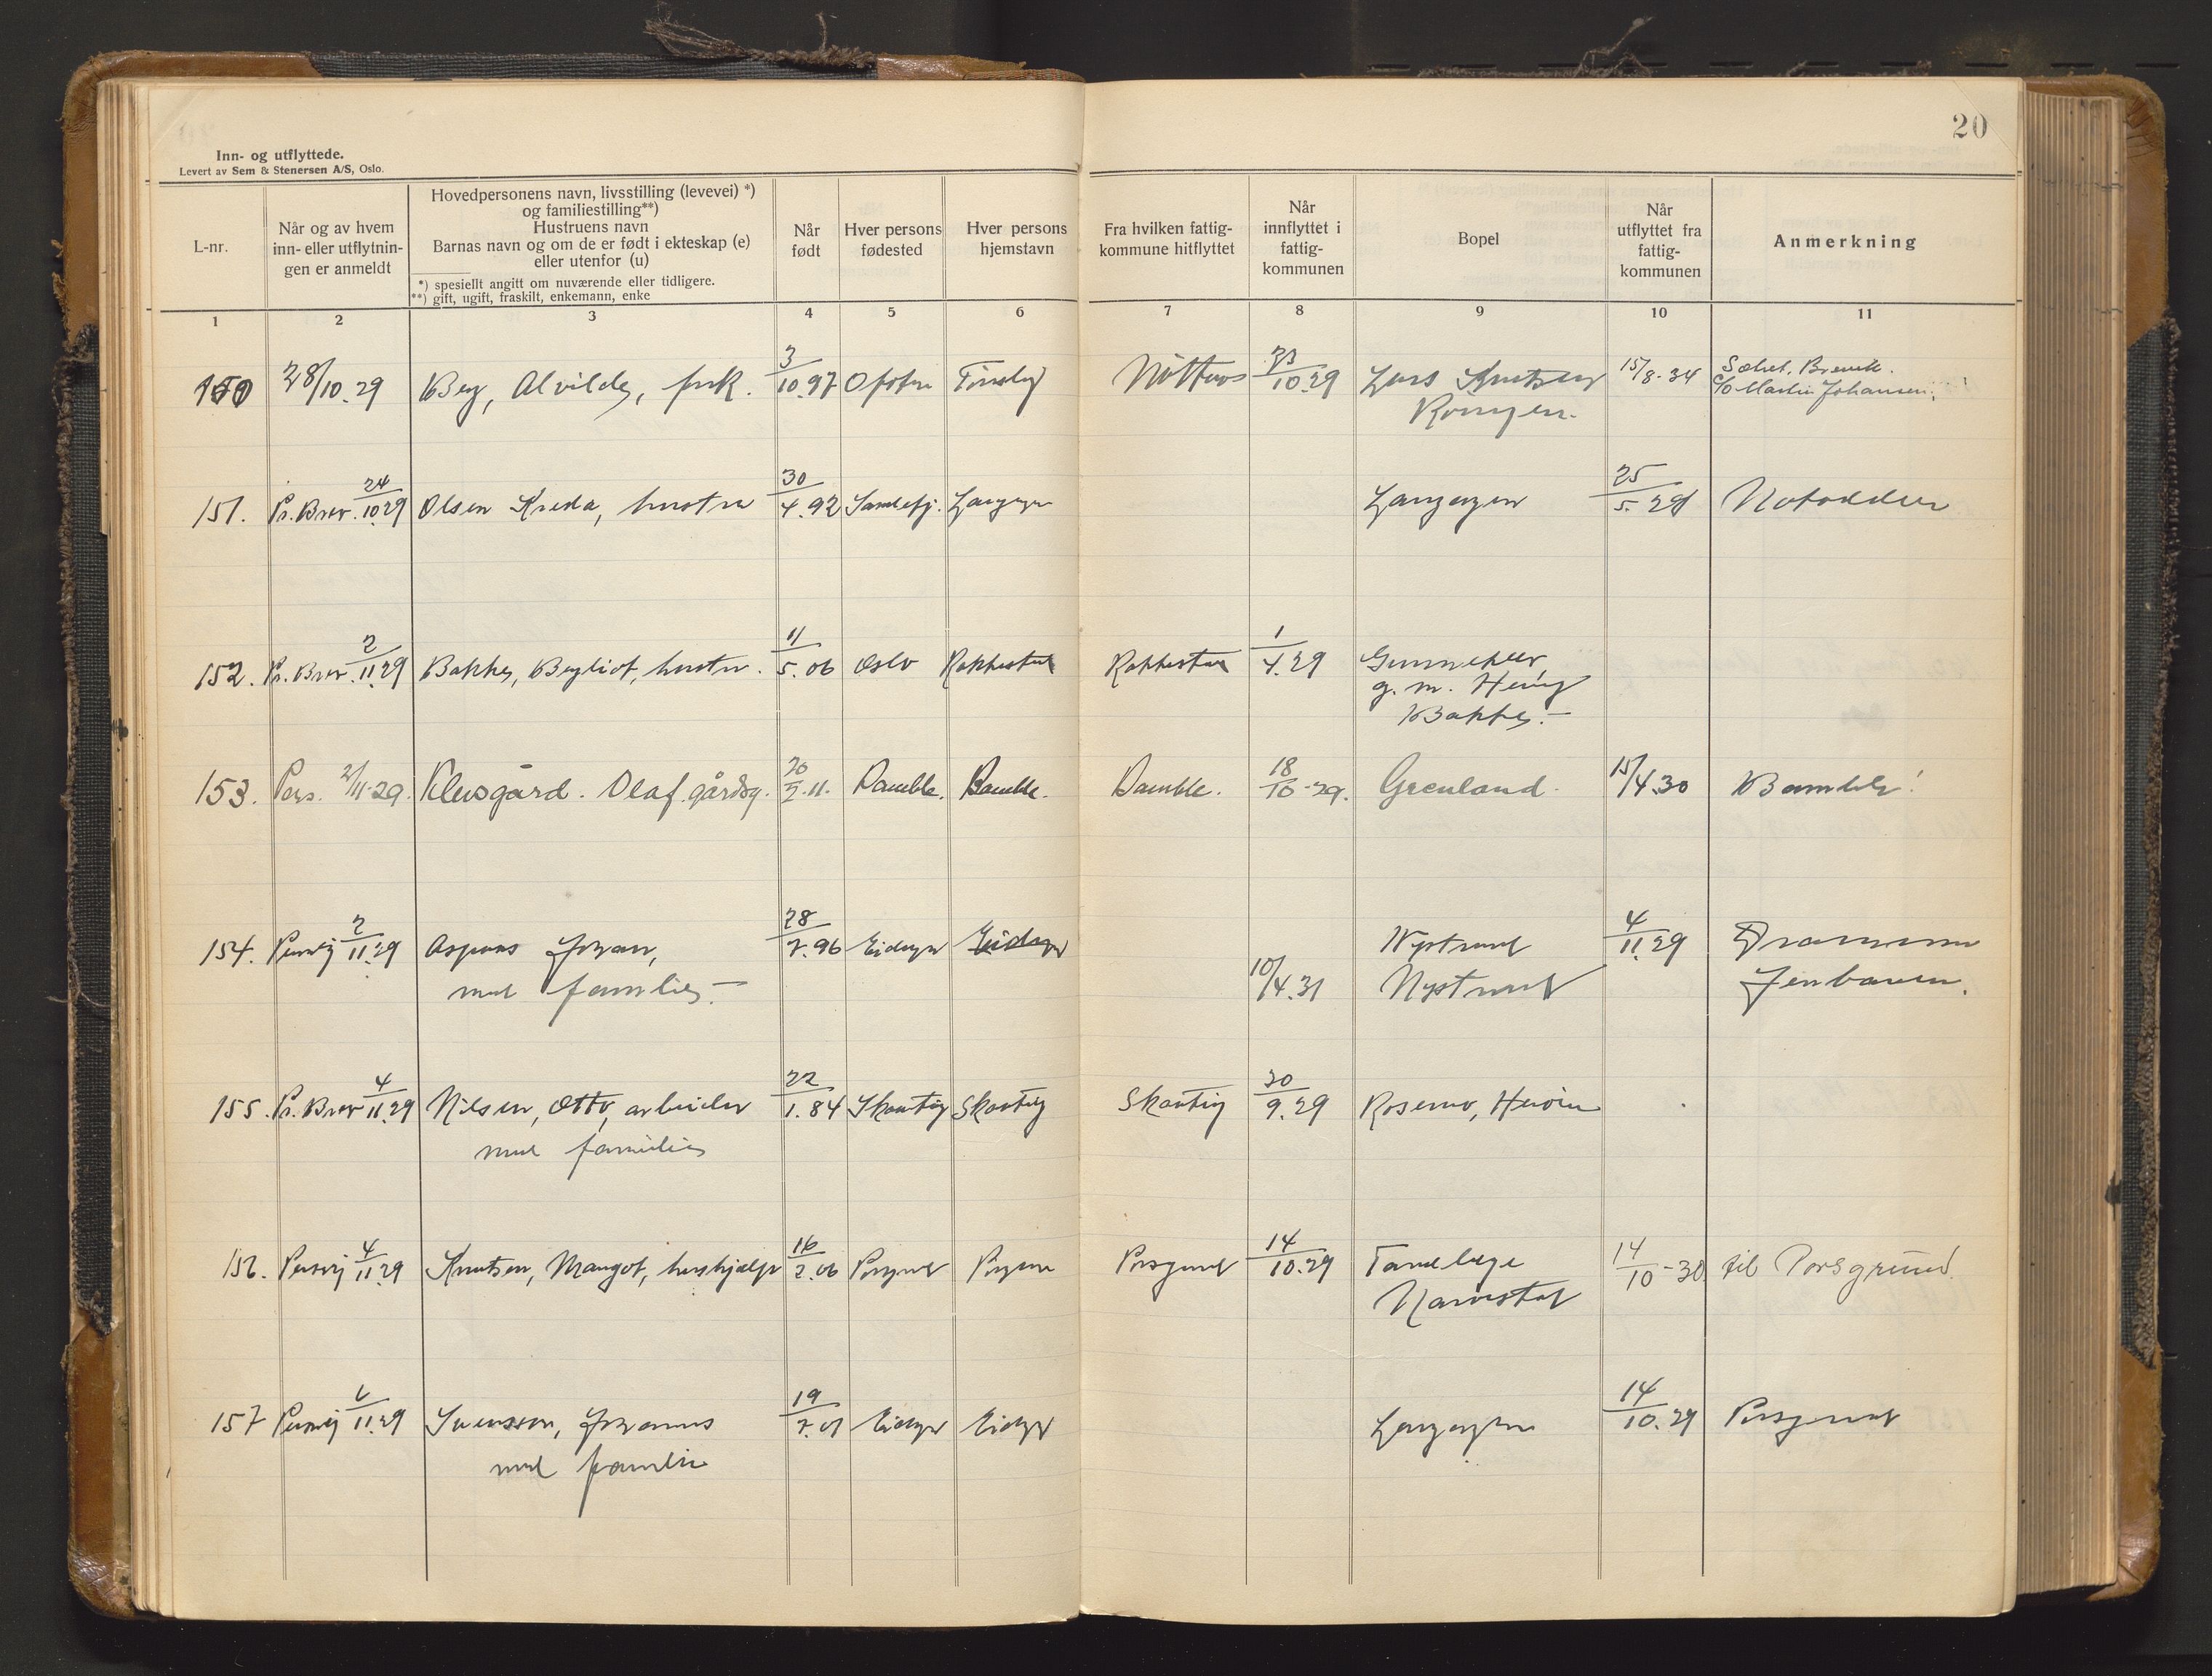 20
Inn- og utflyttede.
Levert av Sem & Stenersen A/S, Oslo.
L-nr.
Når og av hvem
inn- eller utflytnin-
gen er anmeldt
Hovedpersonens navn, livsstilling (levevei) *)
og familiestilling**)
Hustruens navn
Barnas navn og om de er født i ekteskap (e)
eller utenfor (u)
*) spesiellt angitt om nuværende eller tidligere.
**) gift, ugift, fraskilt, enkemann, enke
Når
født
Hver persons
fødested
Hver persons
hjemstavn
Fra hvilken fattig-
kommune hitflyttet
Når
innflyttet i
fattig-
kommunen
Bopel
Når
utflyttet fra
fattig-
kommunen
Anmerkning
1 2 3 4 5 6 7 8 9 10 11
150 28/10.29 Berg, Alvilde, frk. 3/10.97 Lars Knutsen 15/8-34
c/o Martin Johansen.
151. Pr. Brev 24/10.29 Olsen hustru 30/4.92 Sandefj. Langangen Langangen 25/5. Notodden
152. Pr. Brev. 2/11.29 Bakke, Bergliot, hustru. 11/5.06 Oslo Rakkestad Rakkestad 1/4.29 Gunneklev
g. m.
Bakke.-
153. Pers. 2/11-29. Klevsgård. Olaf. gårdsg. Bamble. Bamble. Bamble. 18/10-29. Grenland. 15/4.30 Bamble!
154. 2/11.29 Johan, 28/7.96 Eidanger Eidanger Nystrand 4/11.29 Drammen
med familie.- 10/4.31 Nystrand Jernbanen.
155. Pr. Brev 4/11.29 Nilsen, Otto, arbeider 22/1.84 30/9.29 Herøen
med familie
156. 4/11.29 Knutsen, Margot, hushjælp 16/2.06 Porsgrund Porsgrund 14/10.29 Tandlege 14/10-30 til Porsgrund.
157 11.29 Svensson, Johannes 19/7.01 Eidanger Eidanger Langangen 14/10.29 Porsgrund
med familie